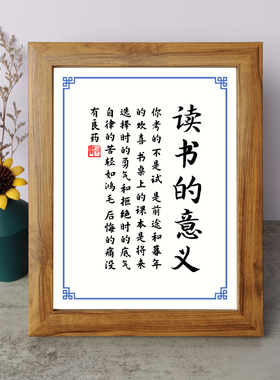 读书的意义
你考的不是试 是前途和暮年
的欢喜 书桌上的课本是将来
选择时的勇气和拒绝时的底气
自律的苦轻如鸿毛 后悔的痛没
有良药